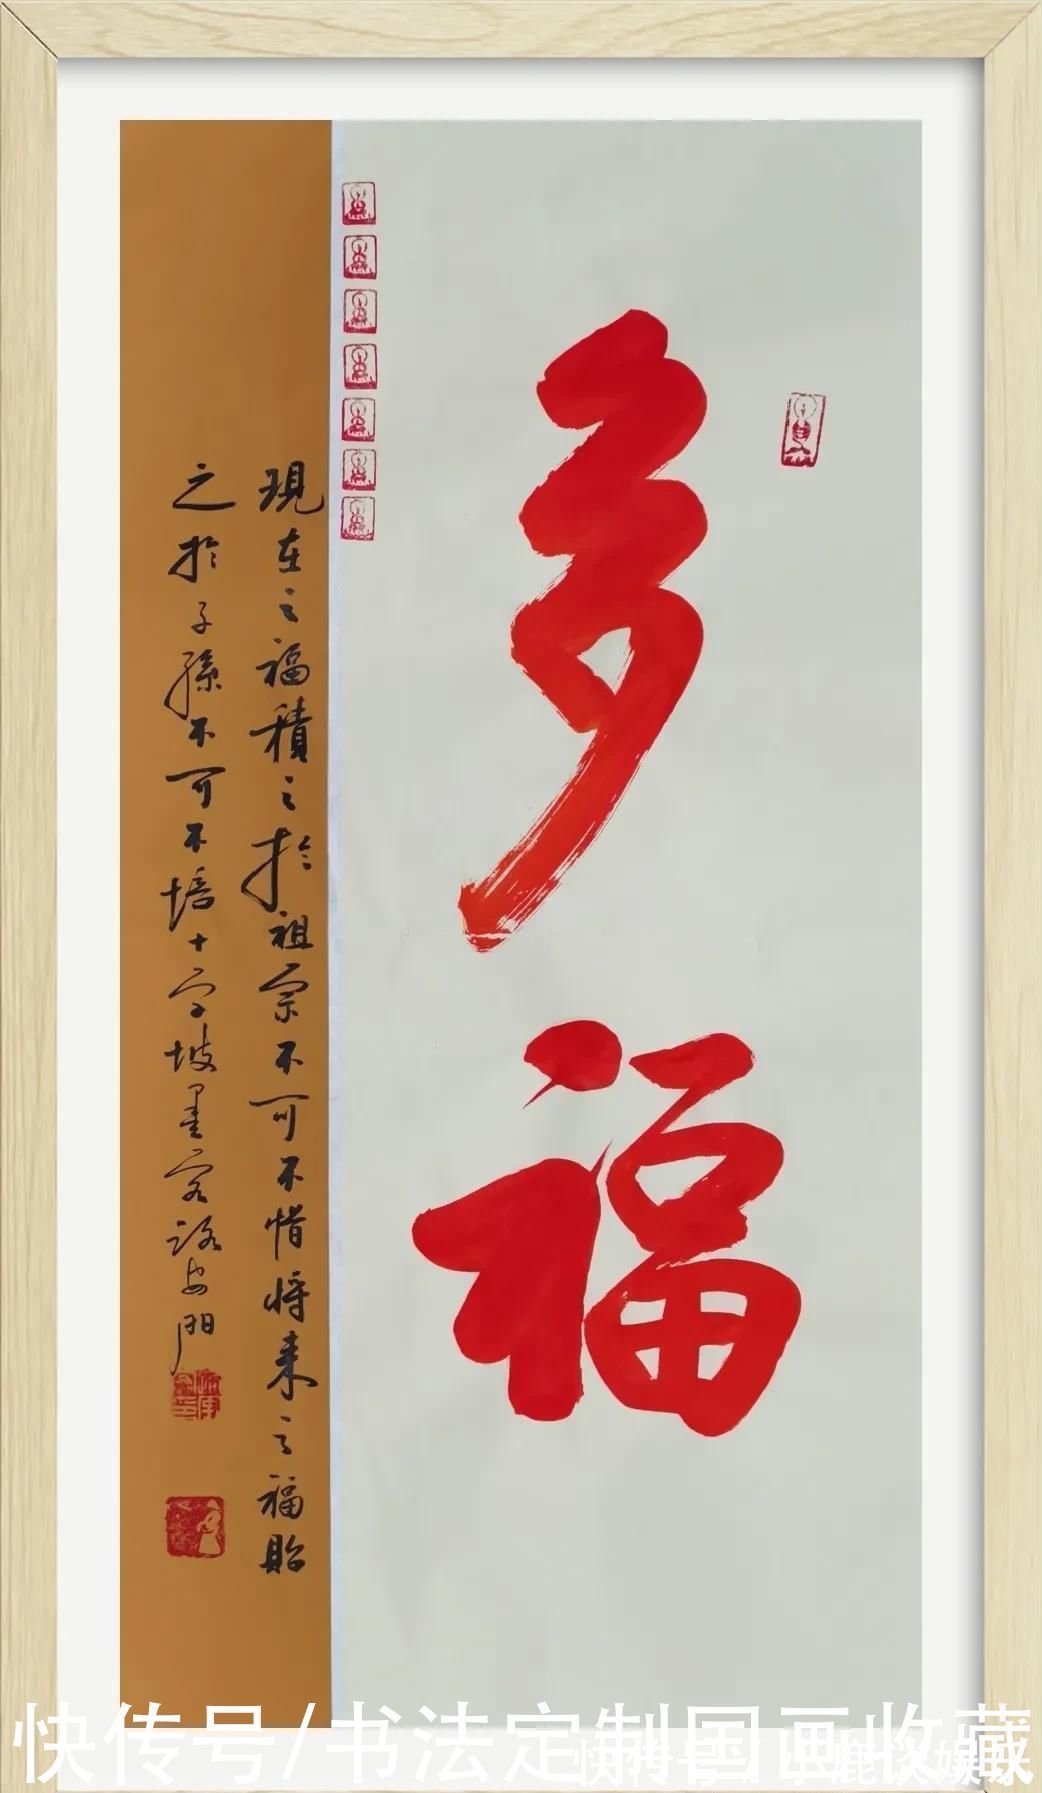 多福
現在之福積之於祖宗不可不惜将来之福貽
之於子孫不可不培十字坡墨客路安門
快传号/书法定制国画收藏